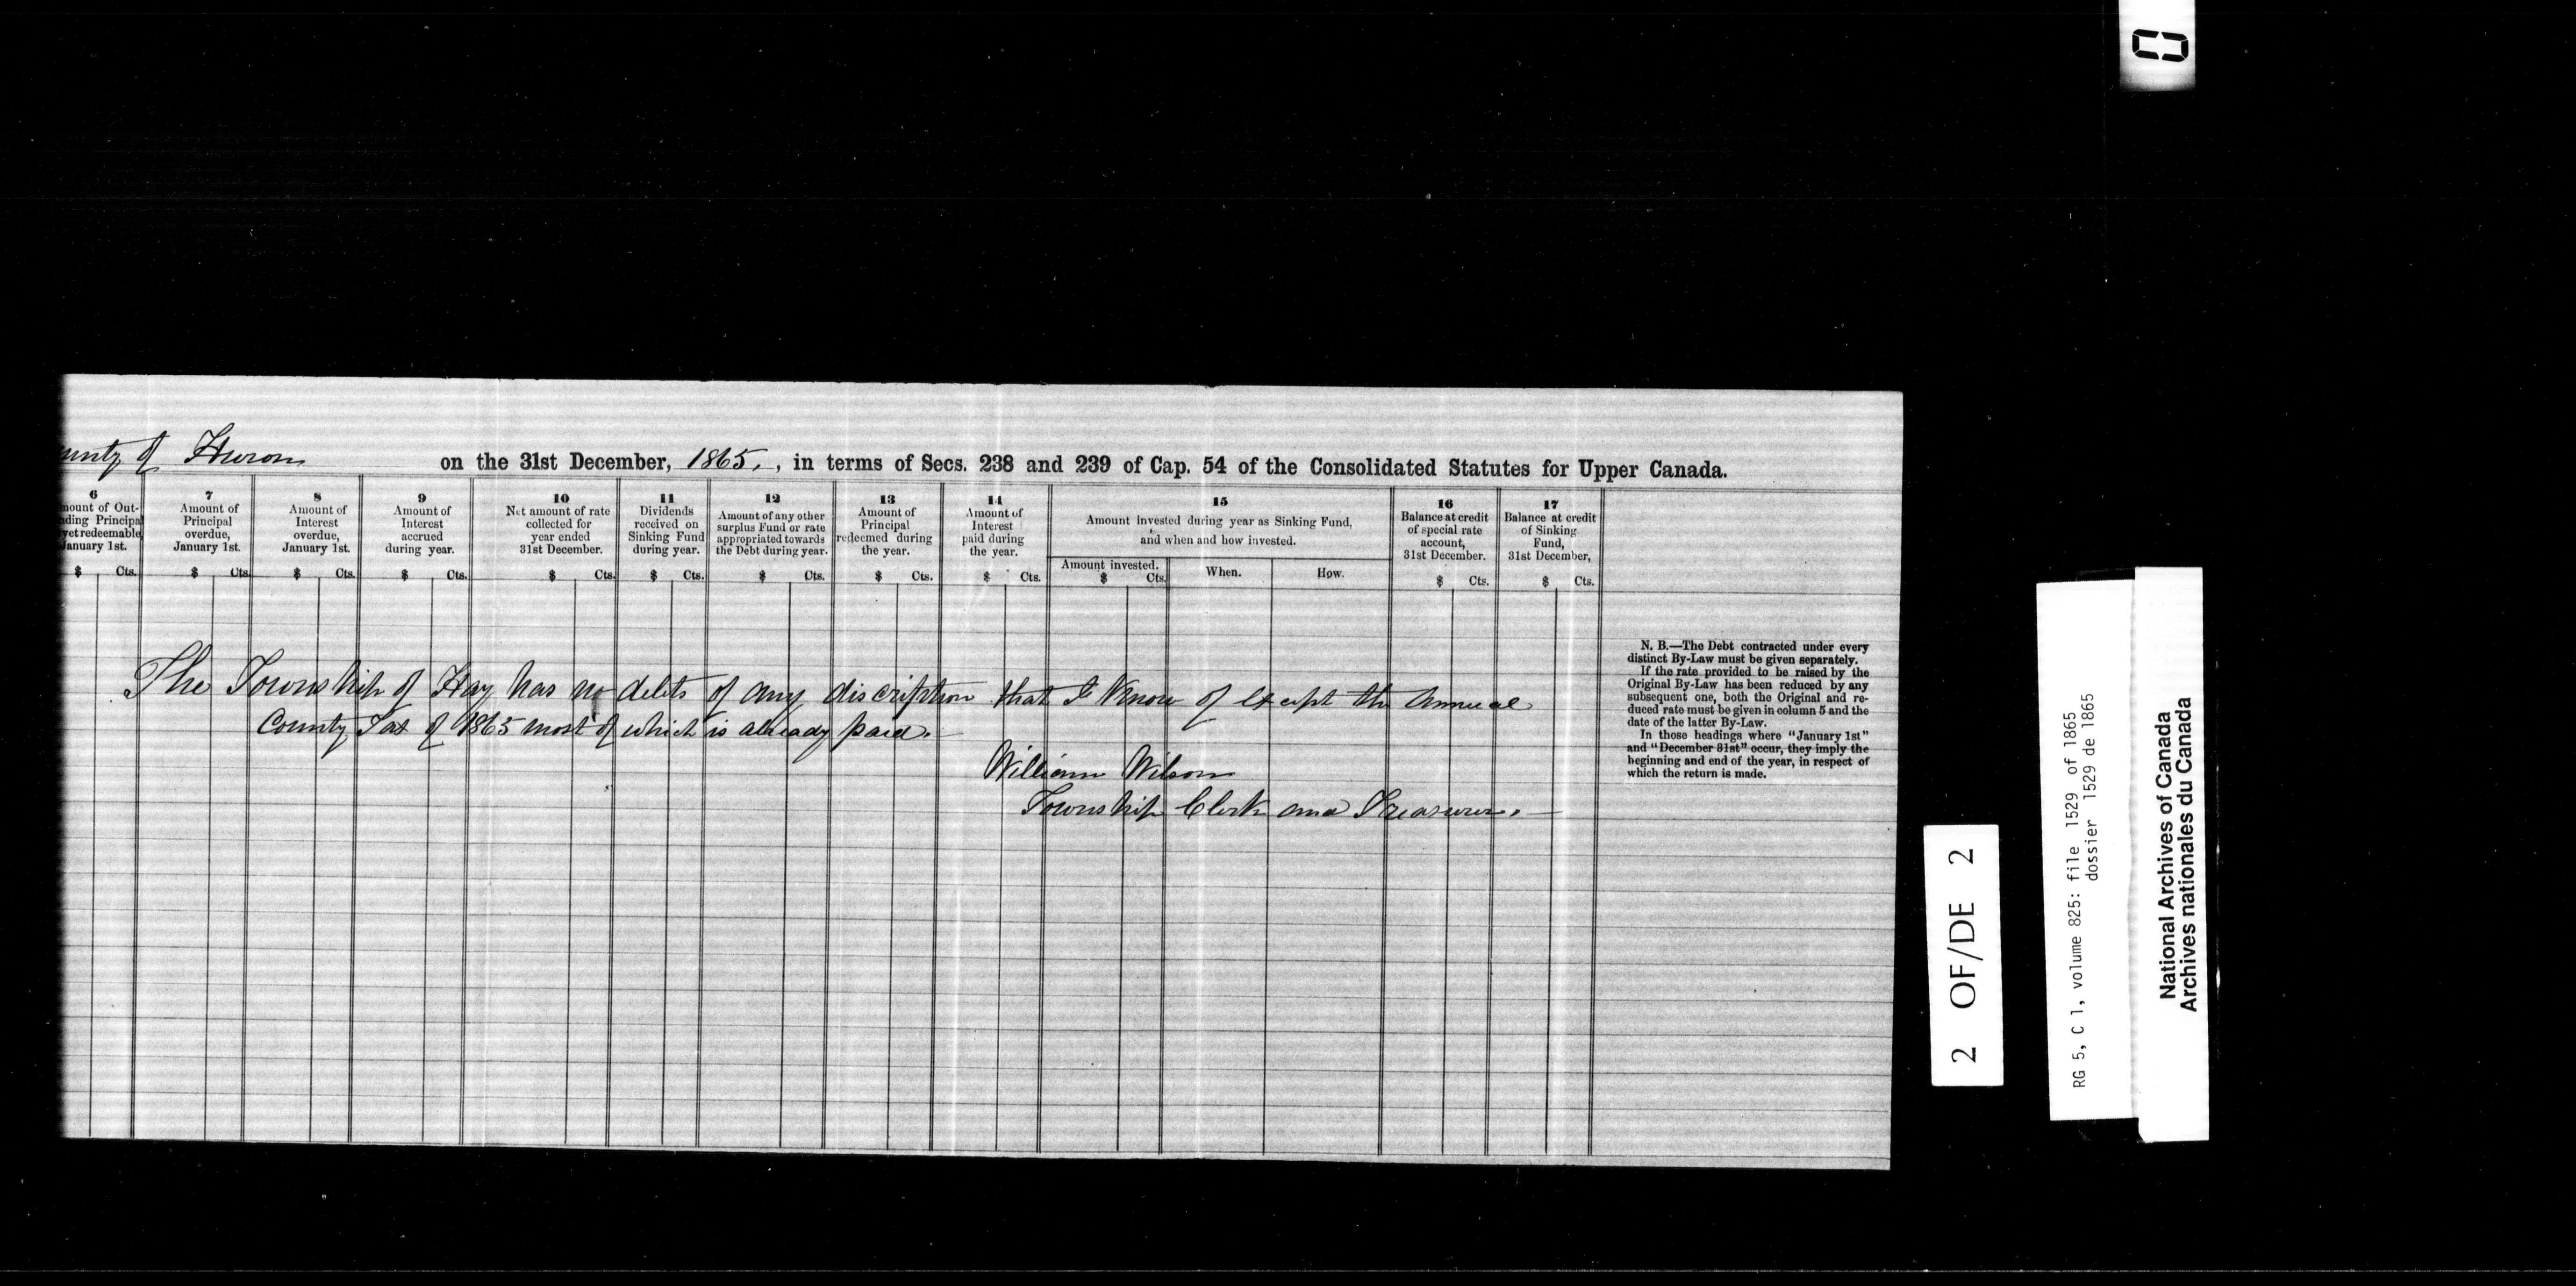 unty of Huron on the 31st December, 1865. , in terms of Secs. 238 and 239 of Cap. 54 of the Consolidated Statutes for Upper Canada.
6
mount of Out-
ding Principal
yet redeemable
January 1st.
$ Cts.
7
Amount of
Principal
overdue,
January 1st.
$ Cts.
8
Amount of
Interest
overdue,
January 1st.
$ Cts.
9
Amount of
Interest
accrued
during year.
$ Cts.
10
Net amount of rate
collected for
year ended
31st December.
$ Cts.
11
Dividends
received on
Sinking Fund
during year.
$ Cts.
12
Amount of any other
surplus Fund or rate
appropriated towards
the Debt during year.
$ Cts.
13
Amount of
Principal
redeemed during
the year.
$ Cts.
14
Amount of
Interest
paid during
the year.
$ Cts.
15
Amount invested during year as Sinking Fund,
and when and how invested.
Amount invested.
$ Cts.
When.
How.
16
Balance at credit
of special rate
account,
31st December.
$ Cts.
17
Balance at credit
of Sinking
Fund,
31st December,
$ Cts.
The Township of Hay has no debts of any discription that I Know of except the Annual
County Tax of 1865 most of which is already paid.
William Wilson
Township Clerk and Treasurer.
N. B.—The Debt contracted under every
distinct By-Law must be given separately.
If the rate provided to be raised by the
Original By-Law has been reduced by any
subsequent one, both the Original and re-
duced rate must be given in column 5 and the
date of the latter By-Law.
In those headings where "January 1st"
and "December 31st" occur, they imply the
beginning and end of the year, in respect of
which the return is made.
2 OF/DE 2
RG 5, C 1, volume 825: file 1529 of 1865
dossier 1529 de 1865
National Archives of Canada
Archives nationales du Canada